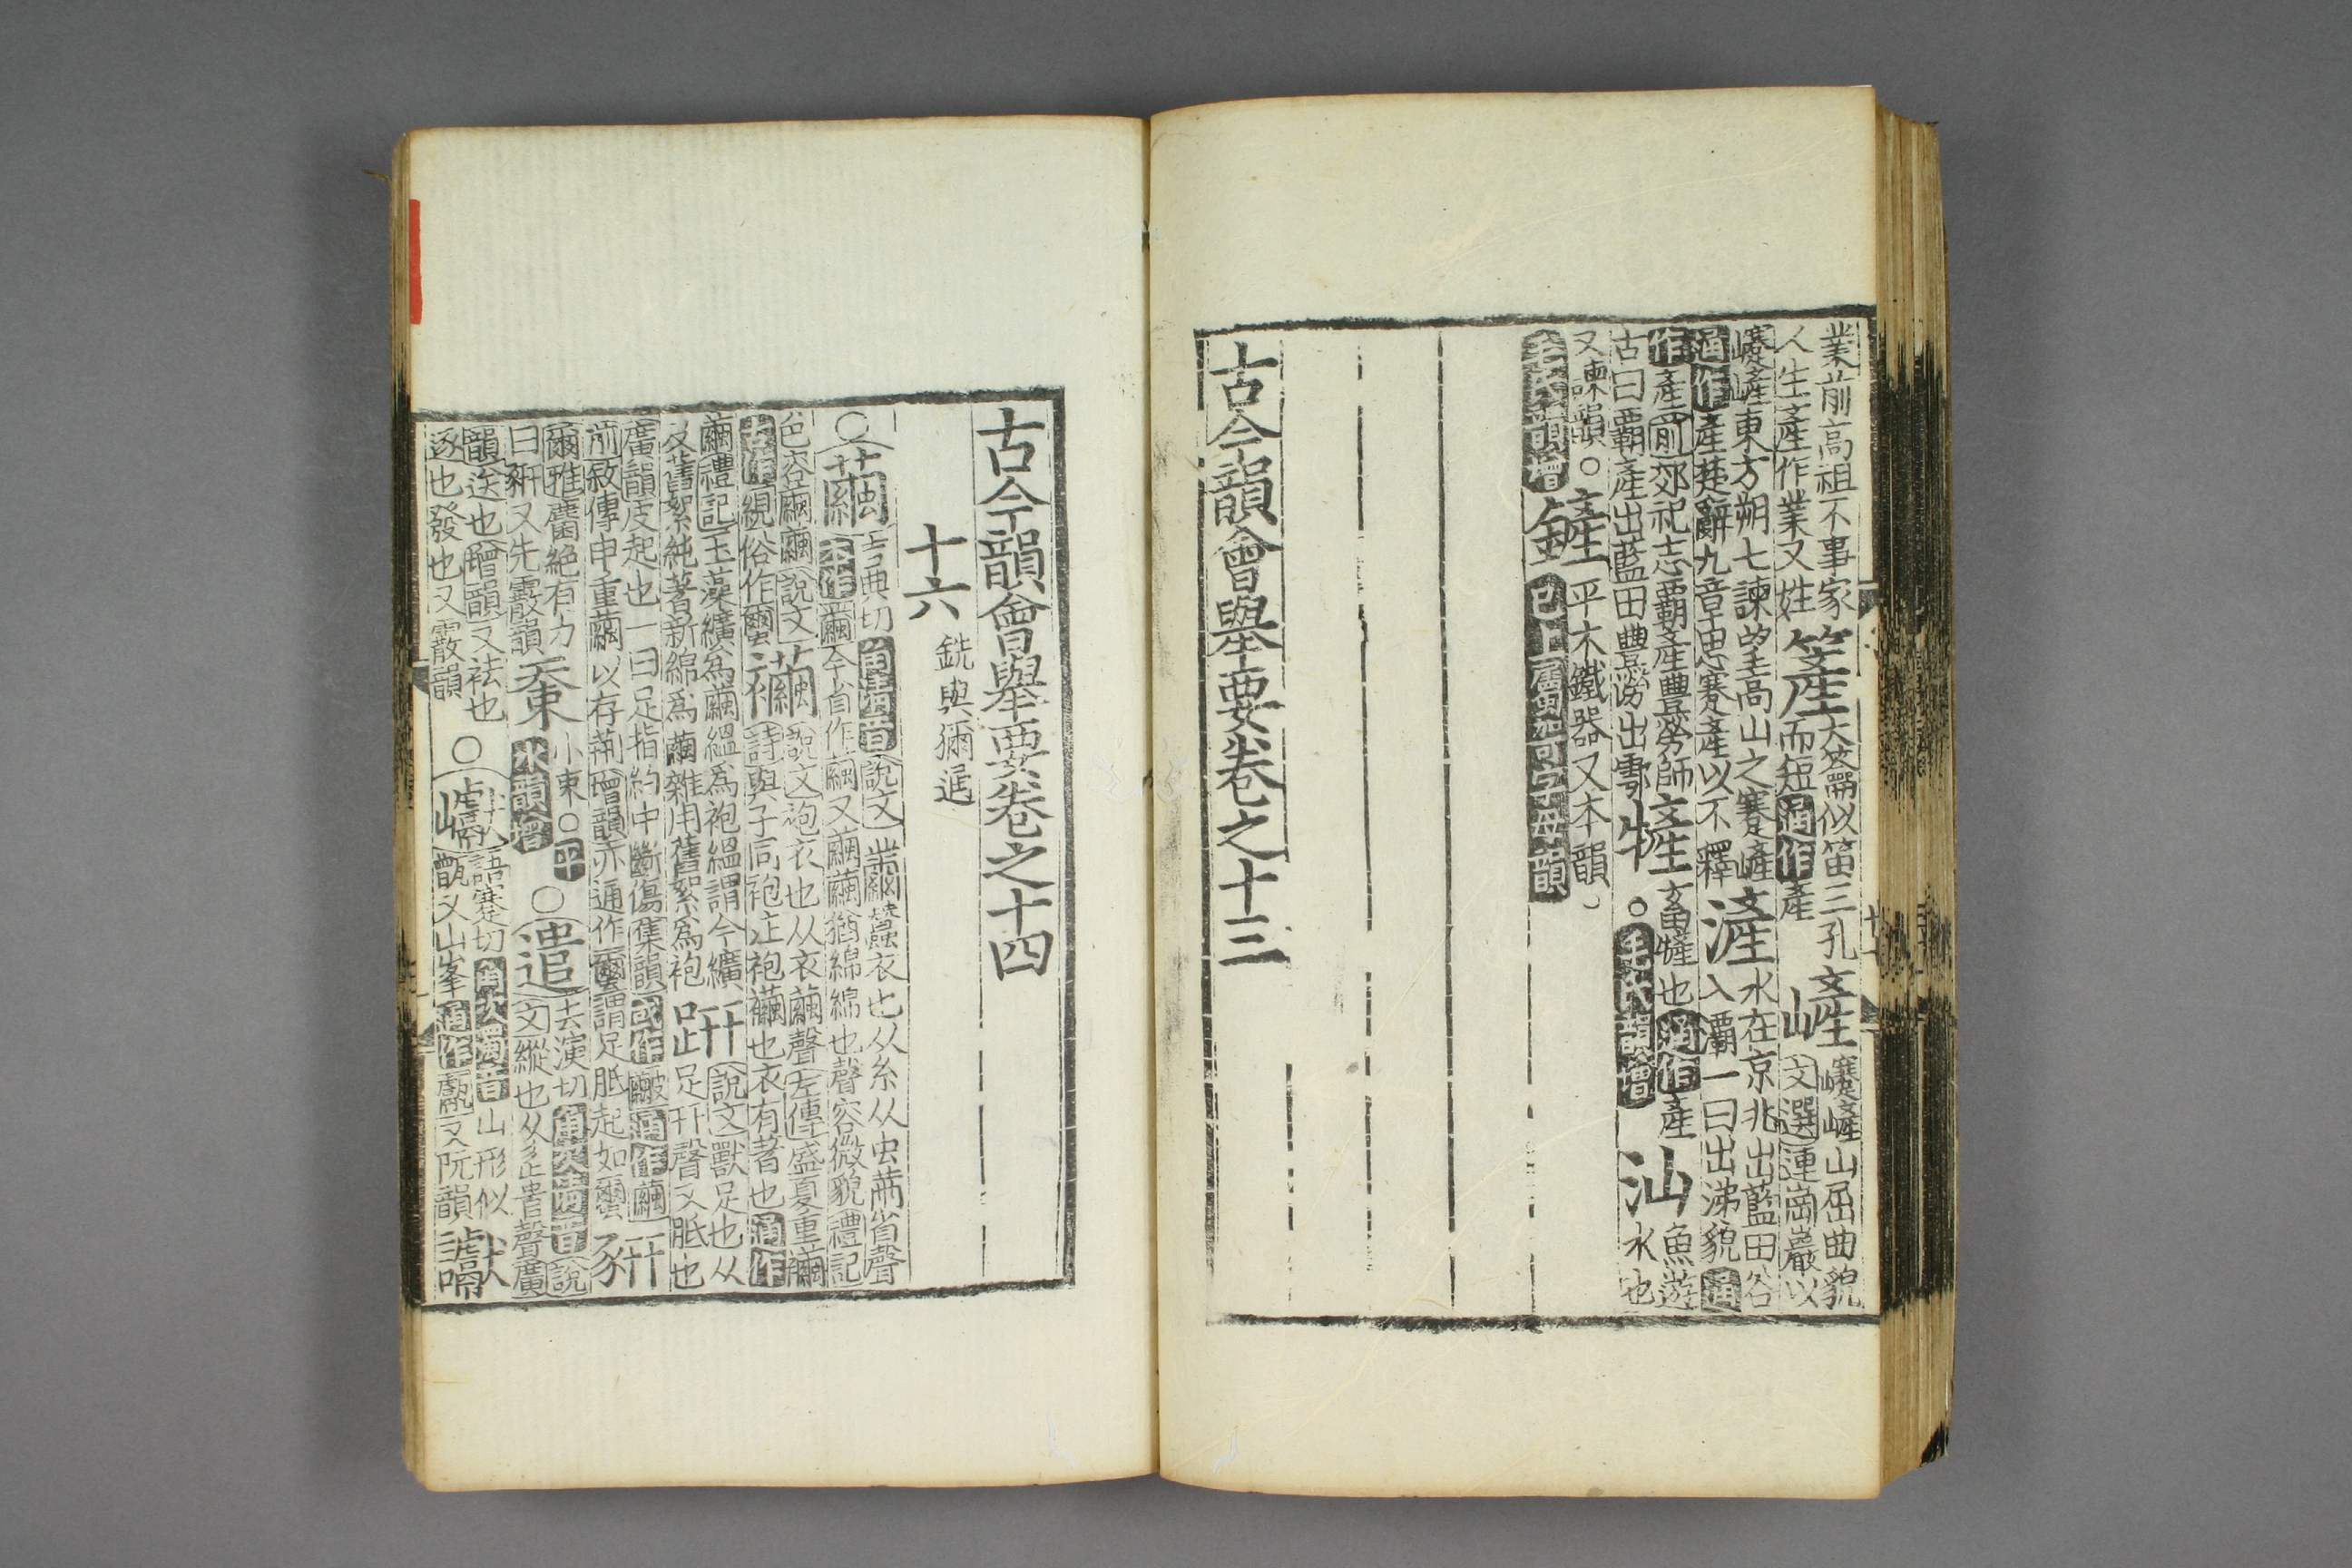 業前高祖不事家
人生產作業又姓
簅
大籥似笛三孔
而短通作產
嵼
㠾嵼山屈曲貌
文選連崗巖以
㠾嵼東方朔七諫望高山之㠾嵼
滻
水在京兆出藍田谷
入灞一曰出涕貌通
通作產楚辭九章思蹇產以不釋
作產前郊祀志霸產豐澇師
古曰霸產出藍田豐澇出鄠
㹌
畜㹌也通作產
毛氏韻增
汕
魚遊
水也
又諫韻○
鏟
平木鐵器又本韻
毛氏韻增
已上屬
字母韻
古今韻會舉要卷之十三
古今韻會舉要卷之十四
十六
銑與獮
○繭
吉典切角清音說文蠶衣也从糸从虫
省聲
本作繭今省作
又繭繭猶綿綿也聲容微貌禮記
色容繭繭說文
古作絸俗作
襺
說文袍衣也从衣繭聲左傳盛夏重襺
詩與子同袍注袍襺也衣有著也通作
繭禮記玉藻纊爲繭縕爲袍縕謂今纊
及舊絮純著新綿爲繭雜用舊絮爲袍
趼
說文獸足也从
足幵聲又胝也
廣韻皮起也一曰足指約中斷傷集韻或作
通作繭
前敘傳申重繭以存荊增韻亦通作
謂足胝起如
豜
爾雅麕絕有力
曰豜又先霰韻
小束○平
水韻增
○遣
去演切角次清音說
文縱也从辵𠳋聲廣
韻送也增韻又袪也
逐也發也又霰韻
○巘
語蹇切角次濁音山形似
甑又山峯通作甗又阮韻
讞